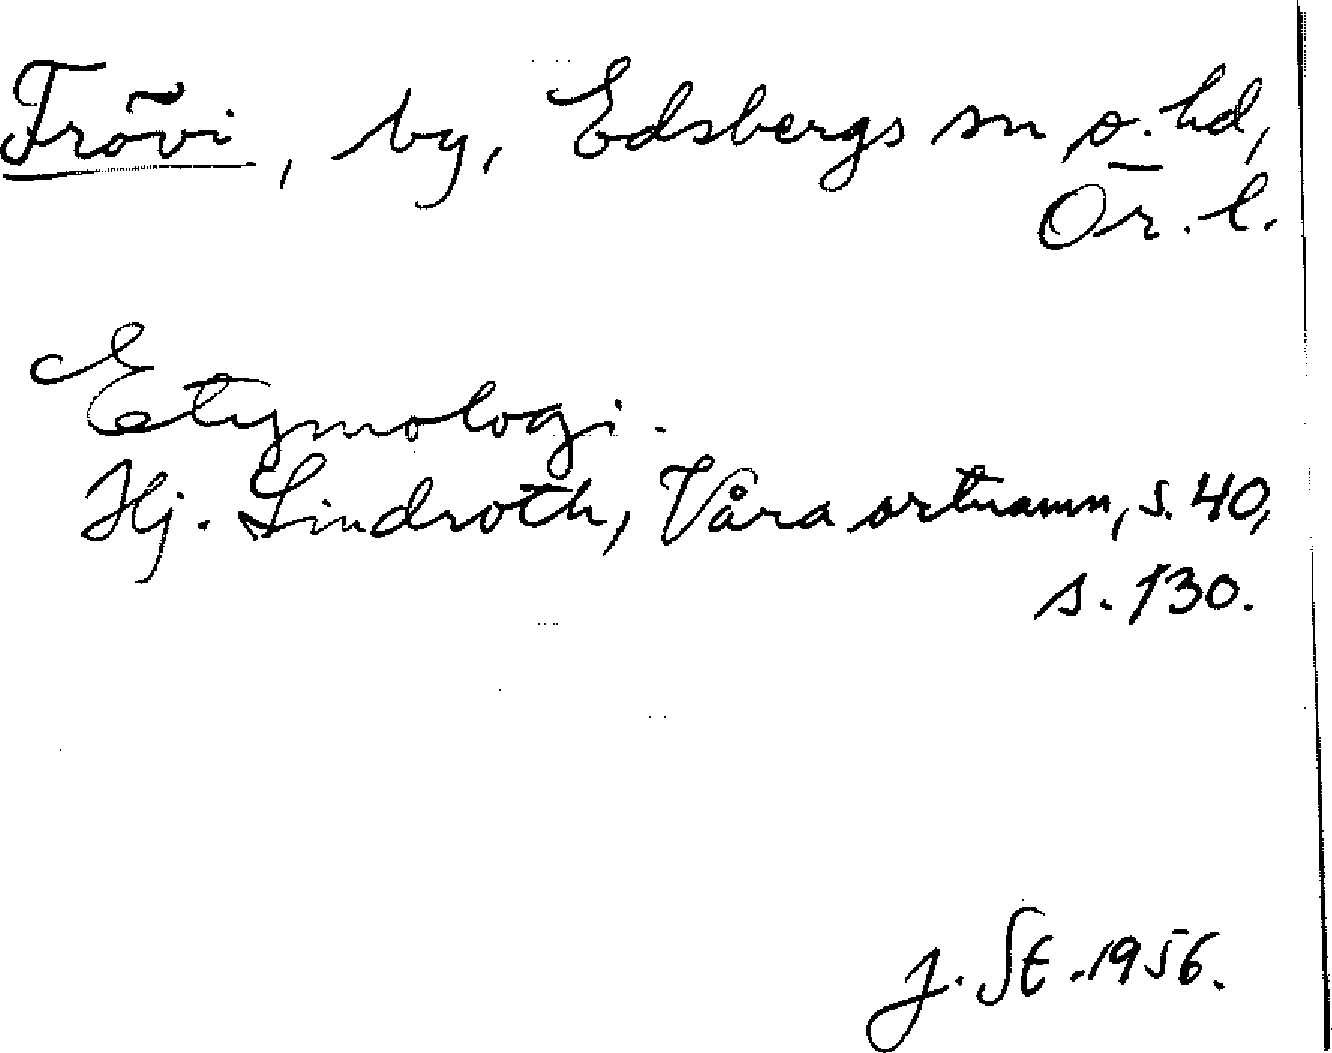 Frövi, by, Edsbergs sn o. hd,
Ör. l.
Etymologi.
Hj. Lindroth, Våra ortnamn, s. 40,
s. 130.
J. St. 1956.